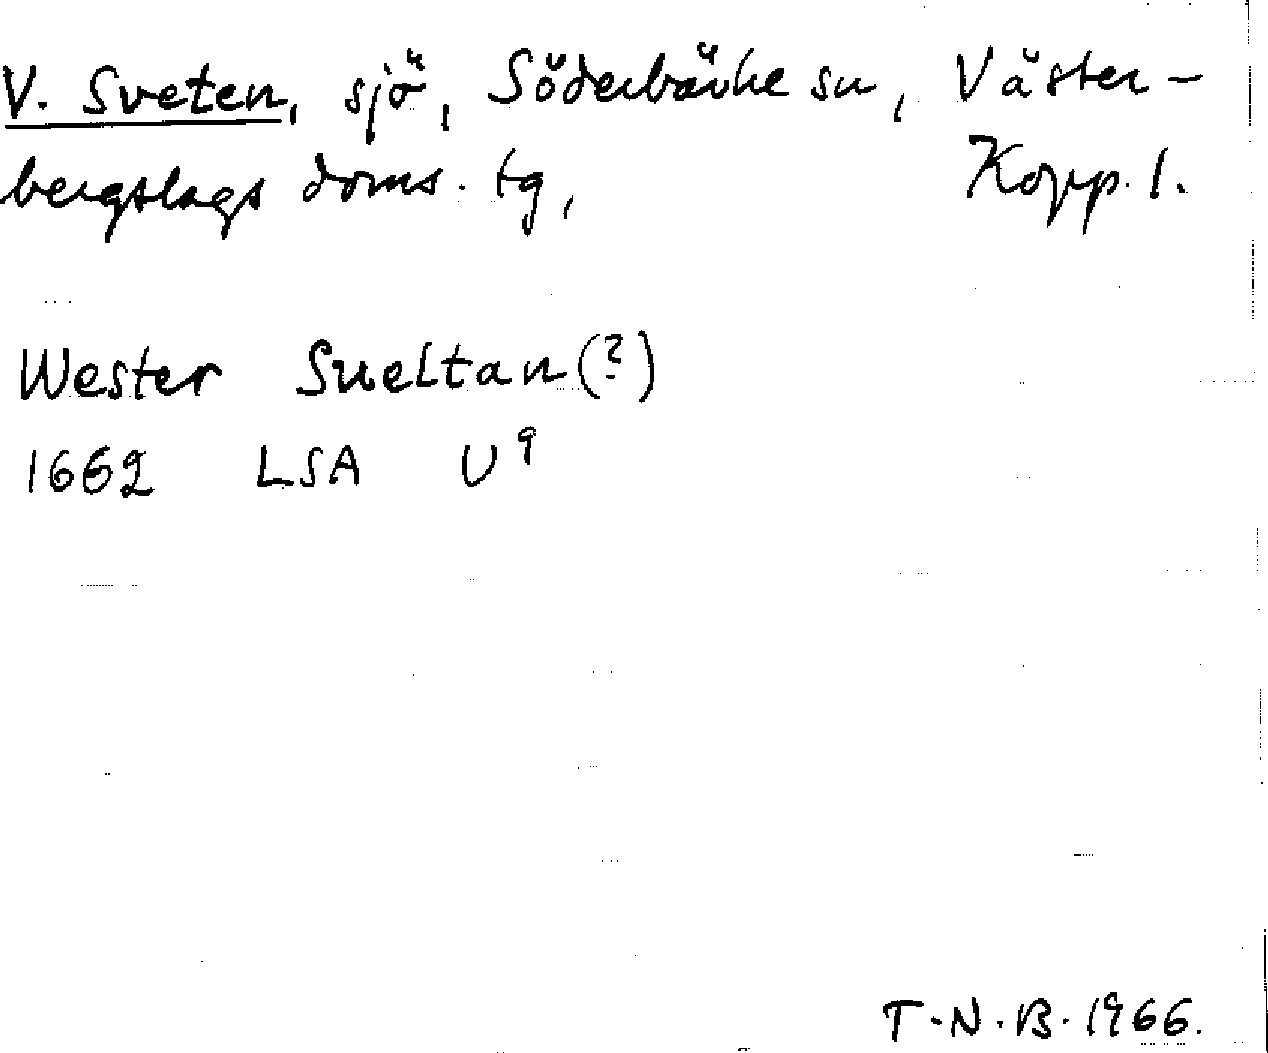 V. Sveten, sjö, Söderbärke sn, Väster-
bergslags doms. tg, Kopp. l.
Wester Sueltan(?)
1662 LSA U⁹
T.N.B. 1966.